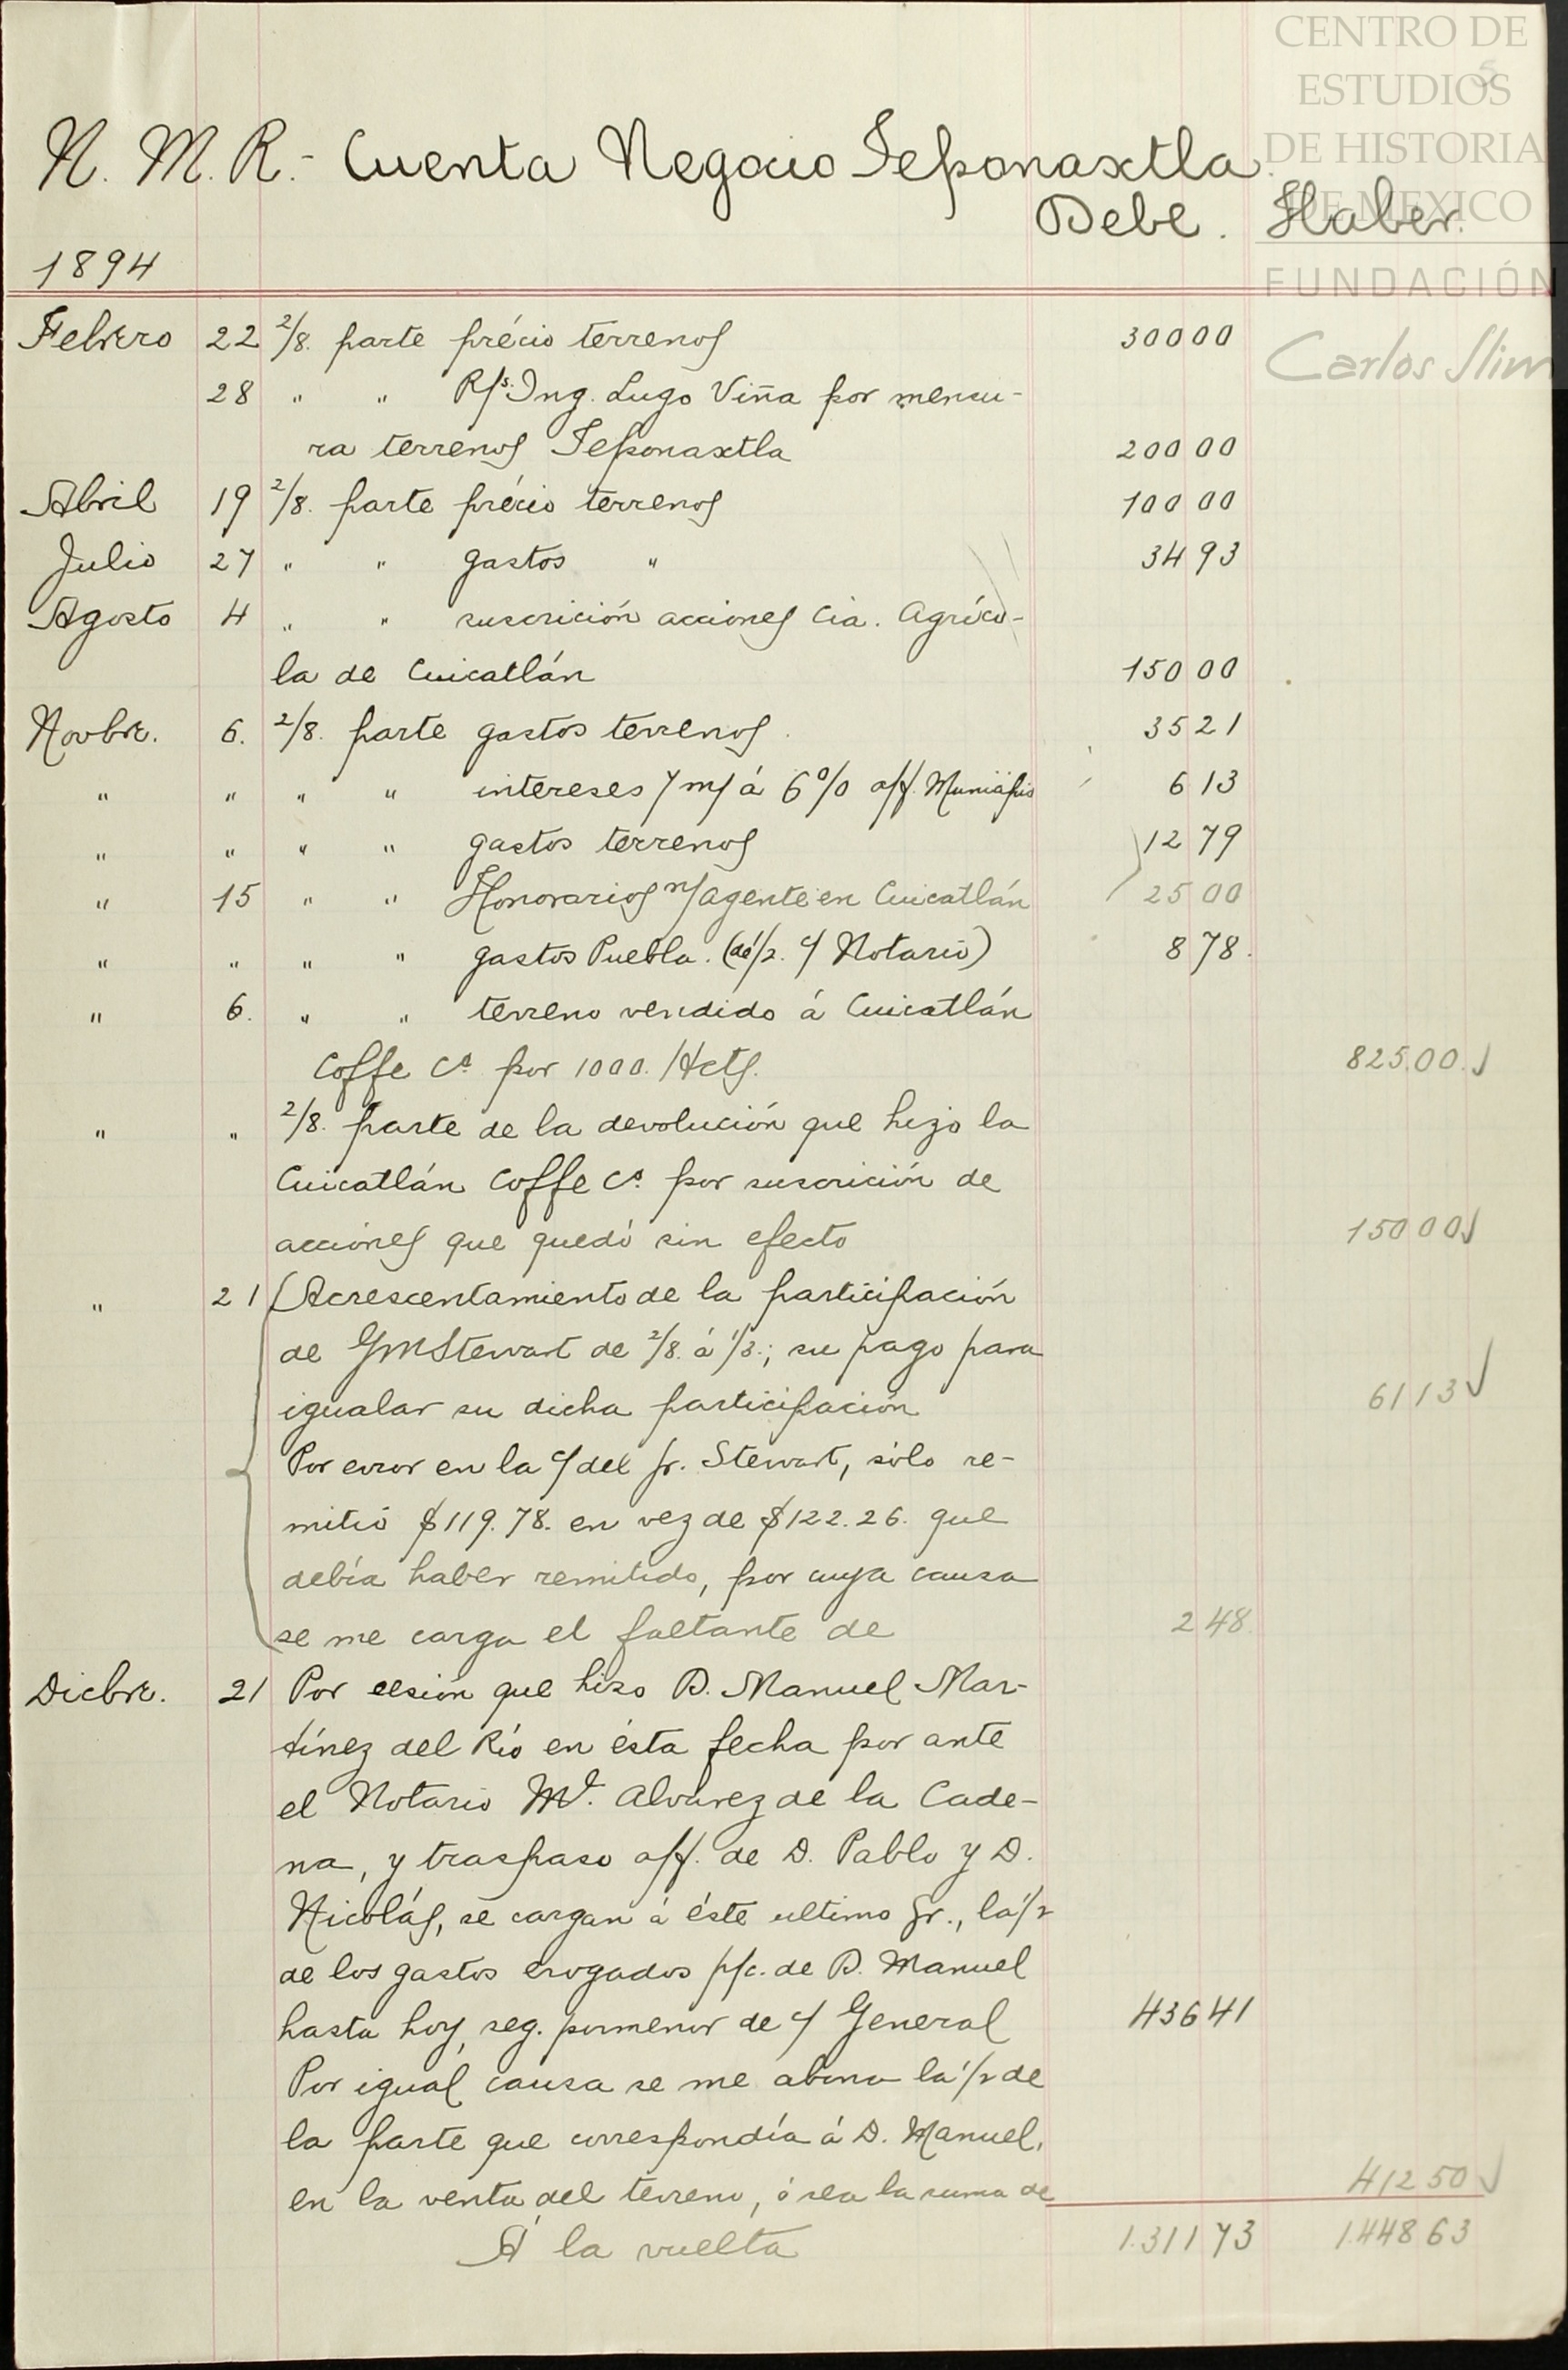 CENTRO DE
ESTUDIOS
DE HISTORIA
DE MEXICO
FUNDACIÓN
Carlos Slim
N. M. R.- Cuenta Negocio Teponaxtla.
Debe. Haber.
1894
Febrero 22 2/8. parte précio terrenos 300 00
28 " " R/s. Ing. Lugo Viña por mensu-
ra terrenos Teponaxtla 200 00
Abril 19 2/8. parte précio terrenos 100 00
Julio 27 " " gastos " 34 93
Agosto 4 " " suscrición acciones Cia. Agríco-
la de Cuicatlán 150 00
Novbre. 6. 2/8. parte gastos terrenos. 35 21
" " " " intereses 7 m/ á 6% a/f. Municipio 6 13
" " " " gastos terrenos 12 79
" 15 " " Honorarios n/ agente en Cuicatlán 25 00
" " " " gastos Puebla. (de 1/2. c/ Notario) 8 78.
" 6. " " terreno vendido á Cuicatlán
Coffe Ca. por 1000. Hcts. 825.00.
" " 2/8. parte de la devolución que hizo la
Cuicatlán Coffe Ca. por suscrición de
acciones que quedó sin efecto 150 00
" 21 Acrescentamiento de la participación
de GMStewart de 2/8. á 1/3.; su pago para
igualar su dicha participación 61 13
Por error en la c/ del Sr. Stewart, sólo re-
mitió $119.78. en vez de $122.26. que
debía haber remitido, por cuya causa
se me carga el faltante de 2 48.
Dicbre. 21 Por cesión que hizo D. Manuel Mar-
tínez del Río en ésta fecha por ante
el Notario Ml. Alvarez de la Cade-
na, y traspaso a/f. de D. Pablo y D.
Nicolás, se cargan á éste ultimo Sr., la 1/2
de los gastos erogados p/c. de D. Manuel
hasta hoy, seg. pormenor de c/ General 436 41
Por igual causa se me abona la 1/2 de
la parte que correspondía á D. Manuel,
en la venta del terreno, ó sea la suma de 412 50
Á la vuelta 1.311 73 1.448 63